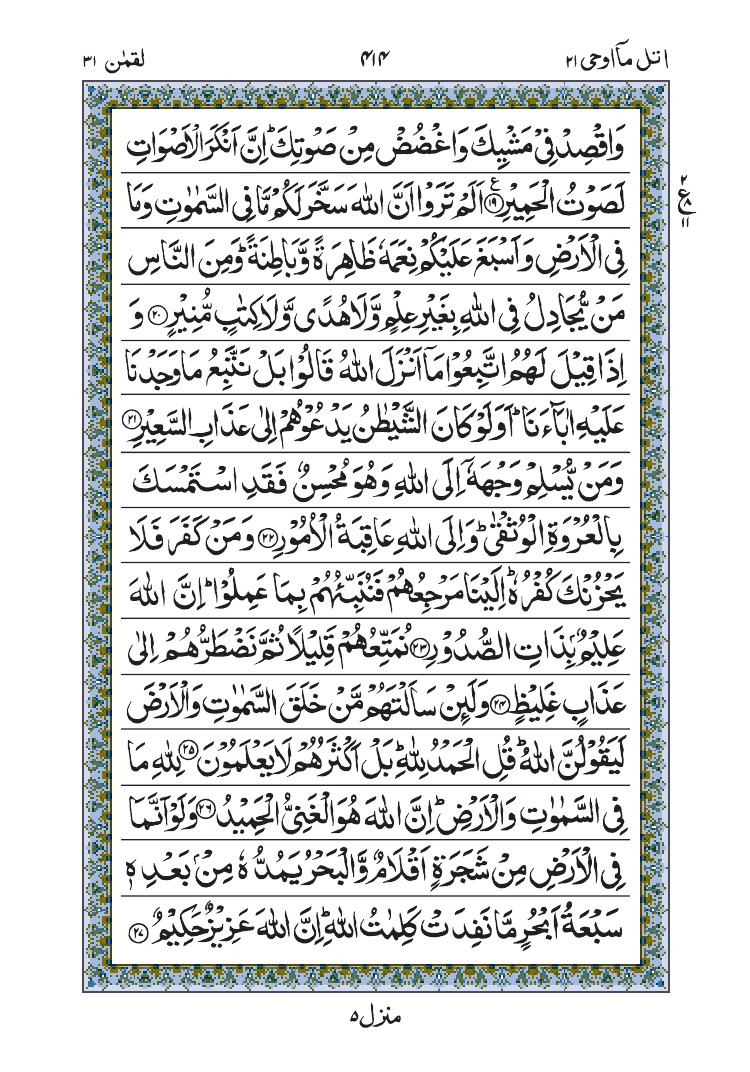 اتل مآاوحی ۲۱
۴۱۴
لقمٰن ۳۱
وَاقْصِدْ فِیْ مَشْیِكَ وَاغْضُضْ مِنْ صَوْتِكَ ؕ اِنَّ اَنْكَرَ الْاَصْوَاتِ
لَصَوْتُ الْحَمِیْرِ ۟۠ ﴿۱۹﴾ اَلَمْ تَرَوْا اَنَّ اللّٰهَ سَخَّرَ لَكُمْ مَّا فِی السَّمٰوٰتِ وَمَا
۲
ع
۸
۱۱
فِی الْاَرْضِ وَاَسْبَغَ عَلَیْكُمْ نِعَمَهٗ ظَاهِرَةً وَّبَاطِنَةً ؕ وَمِنَ النَّاسِ
مَنْ یُّجَادِلُ فِی اللّٰهِ بِغَیْرِ عِلْمٍ وَّلَا هُدًی وَّلَا كِتٰبٍ مُّنِیْرٍ ﴿۲۰﴾ وَ
اِذَا قِیْلَ لَهُمُ اتَّبِعُوْا مَاۤ اَنْزَلَ اللّٰهُ قَالُوْا بَلْ نَتَّبِعُ مَا وَجَدْنَا
عَلَیْهِ اٰبَآءَنَا ؕ اَوَلَوْ كَانَ الشَّیْطٰنُ یَدْعُوْهُمْ اِلٰی عَذَابِ السَّعِیْرِ ﴿۲۱﴾
وَمَنْ یُّسْلِمْ وَجْهَهٗۤ اِلَی اللّٰهِ وَهُوَ مُحْسِنٌ فَقَدِ اسْتَمْسَكَ
بِالْعُرْوَةِ الْوُثْقٰی ؕ وَاِلَی اللّٰهِ عَاقِبَةُ الْاُمُوْرِ ﴿۲۲﴾ وَمَنْ كَفَرَ فَلَا
یَحْزُنْكَ كُفْرُهٗ ؕ اِلَیْنَا مَرْجِعُهُمْ فَنُنَبِّئُهُمْ بِمَا عَمِلُوْا ؕ اِنَّ اللّٰهَ
عَلِیْمٌۢ بِذَاتِ الصُّدُوْرِ ﴿۲۳﴾ نُمَتِّعُهُمْ قَلِیْلًا ثُمَّ نَضْطَرُّهُمْ اِلٰی
عَذَابٍ غَلِیْظٍ ﴿۲۴﴾ وَلَئِنْ سَاَلْتَهُمْ مَّنْ خَلَقَ السَّمٰوٰتِ وَالْاَرْضَ
لَیَقُوْلُنَّ اللّٰهُ ؕ قُلِ الْحَمْدُ لِلّٰهِ ؕ بَلْ اَكْثَرُهُمْ لَا یَعْلَمُوْنَ ﴿۲۵﴾ لِلّٰهِ مَا
فِی السَّمٰوٰتِ وَالْاَرْضِ ؕ اِنَّ اللّٰهَ هُوَ الْغَنِیُّ الْحَمِیْدُ ﴿۲۶﴾ وَلَوْ اَنَّمَا
فِی الْاَرْضِ مِنْ شَجَرَةٍ اَقْلَامٌ وَّالْبَحْرُ یَمُدُّهٗ مِنْۢ بَعْدِهٖ
سَبْعَةُ اَبْحُرٍ مَّا نَفِدَتْ كَلِمٰتُ اللّٰهِ ؕ اِنَّ اللّٰهَ عَزِیْزٌ حَكِیْمٌ ﴿۲۷﴾
منزل ۵